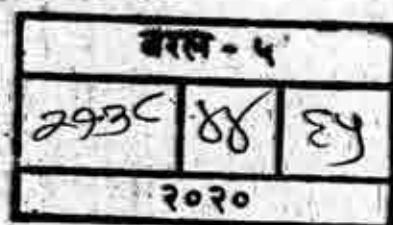 बरल - ५
२९३८ ४४ ६५
२०२०